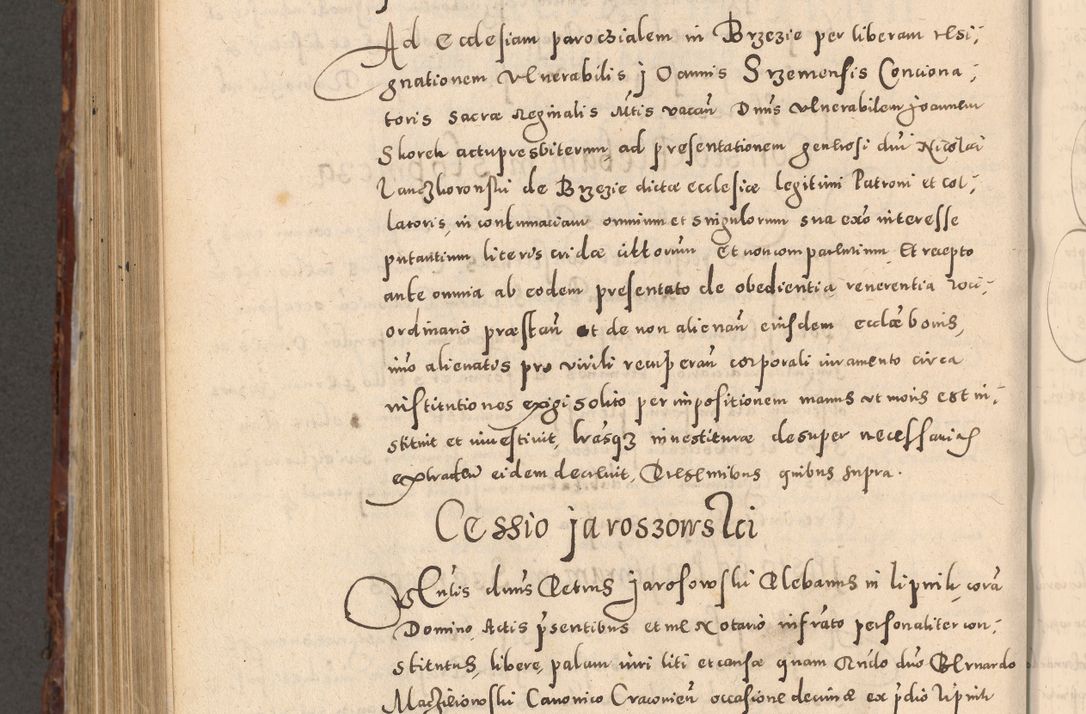 Ad Ecclesiam parochialem in Brzezie per liberam resi-
gnationem Venerabilis Joannis Srzemensis Conciona-
toris Sacræ Reginalis Mtis vacan̄ Dnus venerabilem Joannem
Skorek actu presbiterum, ad presentationem generosi dni Nicolai
Lanczkoronski de Brzezie dictæ ecclesiæ legitimi Patroni et col-
latoris, in contumaciam omnium et singulorum sua exō interesse
putantium, literis cridæ cittorum Et non comparentium, Et recepto
ante omnia ab eodem presentato de obedientia reverentia loci
ordinario præstan̄ et de non alienan̄ eiusdem ecclæ bonis,
imo alienatis pro virili recuperan̄ corporali iuramento circa
institutiones exigi solito per impositionem manus ut moris est in-
stituit et investivit, lrasq3 investituræ desuper necessarias
extraden̄ eidem decrevit, Presentibus quibus supra.
Cessio jaroszowski
Venlis dnus Petrus Jarosowski Plebanus in lipnik, corā
Domino, Actis p̄sentibus et me Notario infrāto personaliter con-
stitutus, libere, palam iuri liti et causæ quam Rndo dno Bernardo
Maczieiowski Canonico Cracovien̄ occasione decimæ ex p̄dio lipnik